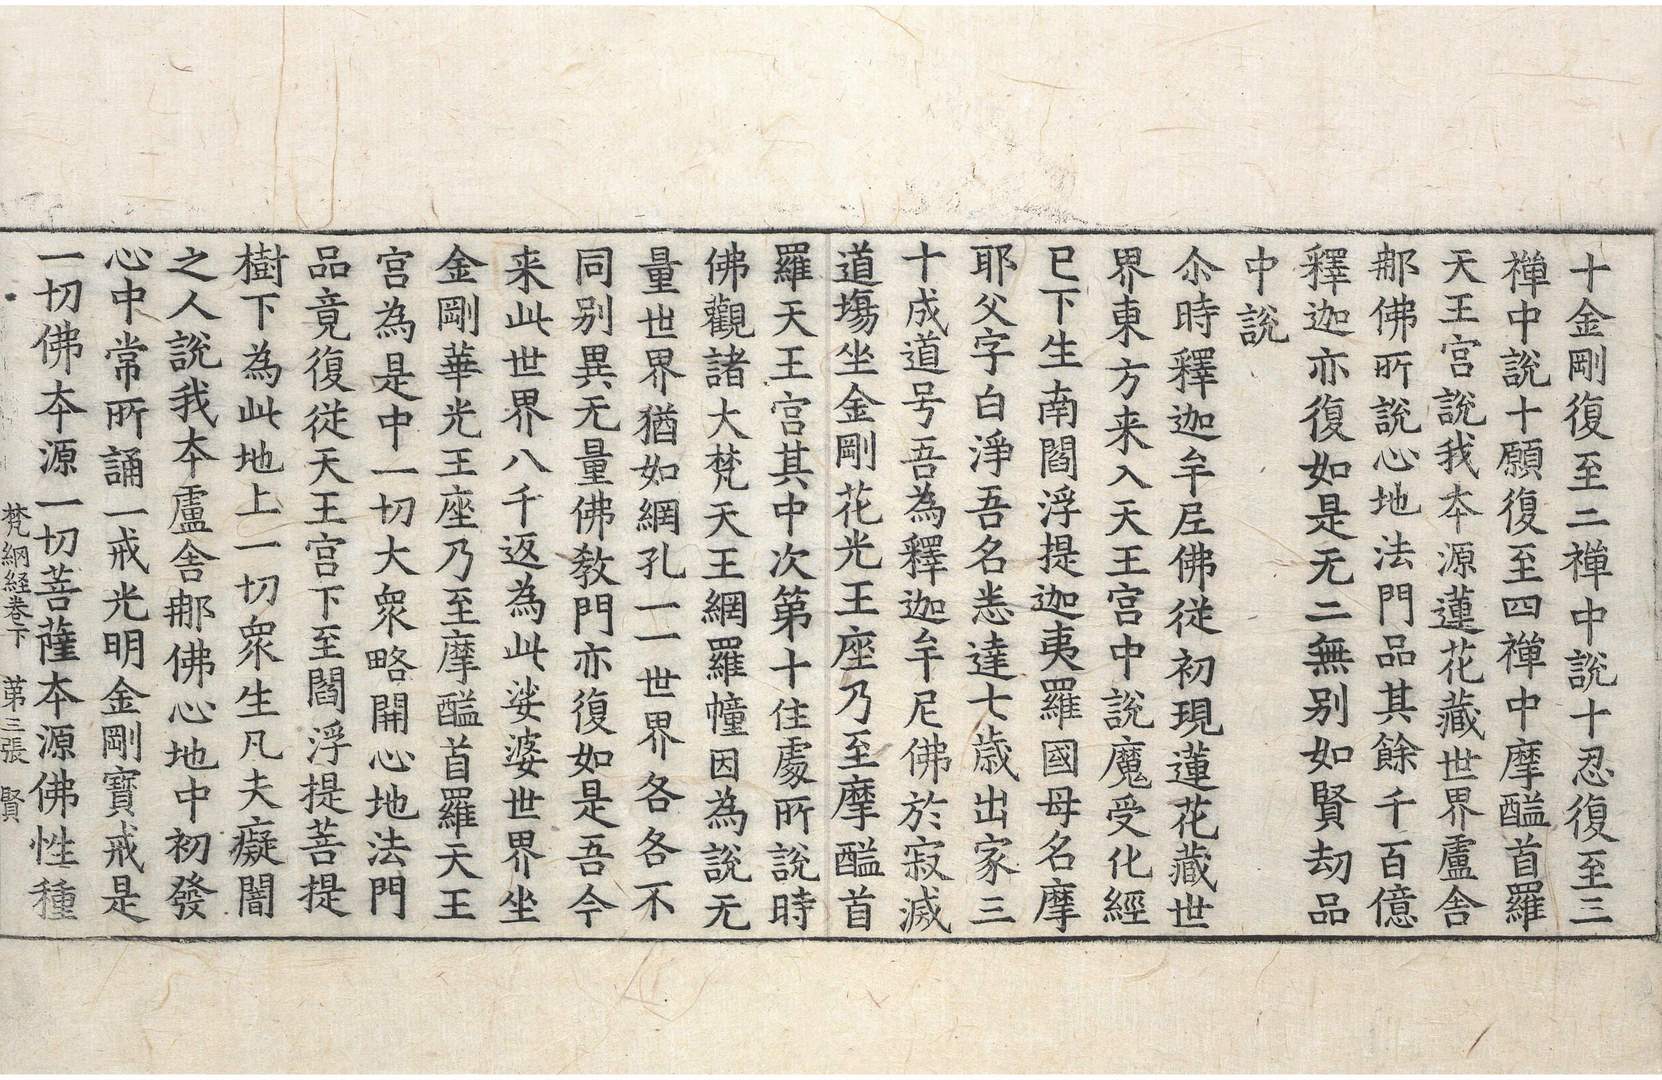 十金剛復至二禅中説十忍復至三
禅中説十願復至四禅中摩醯首羅
天王宮説我夲源蓮花藏世界盧舎
那佛所説心地法門品其餘千百億
釋迦亦復如是无二無别如賢劫品
中説
尒時釋迦牟尼佛從初現蓮花藏世
界東方来入天王宮中説魔受化經
已下生南閻浮提迦夷羅國母名摩
耶父字白淨吾名悉達七歳出家三
十成道号吾為釋迦牟尼佛於寂滅
道塲坐金剛花光王座乃至摩醯首
羅天王宮其中次第十住處所説時
佛觀諸大梵天王網羅幢因為説无
量世界猶如網孔一一世界各各不
同别異无量佛教門亦復如是吾今
来此世界八千返為此娑婆世界坐
金剛華光王座乃至摩醯首羅天王
宮為是中一切大衆略開心地法門
品竟復從天王宮下至閻浮提菩提
樹下為此地上一切衆生凡夫癡闇
之人説我夲盧舎那佛心地中初發
心中常所誦一戒光明金剛寳戒是
一切佛夲源一切菩薩夲源佛性種
梵網経巻下 苐三張 賢